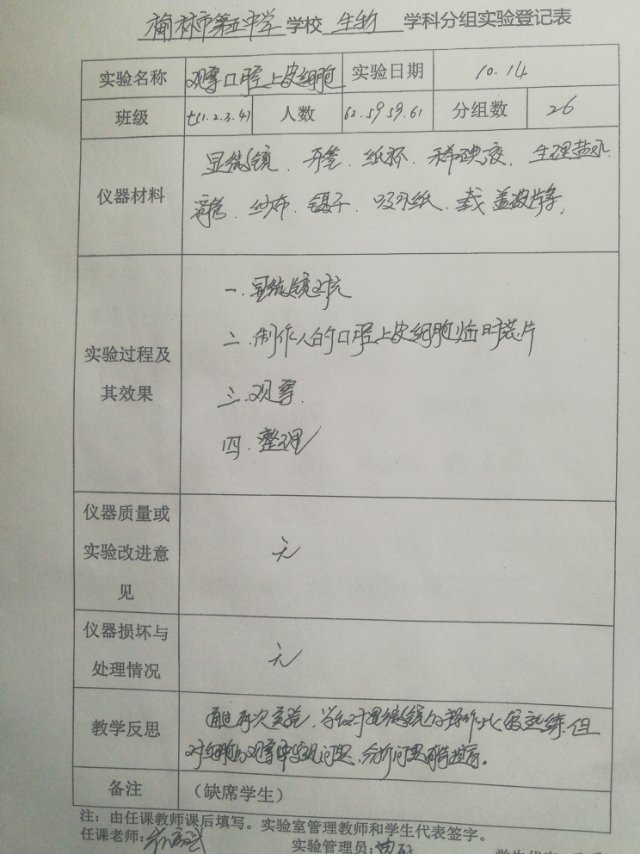 榆林市第五中学 学校 生物 学科分组实验登记表
实验名称 观察口腔上皮细胞 实验日期 10.14
班级 七(1.2.3.4) 人数 62.59 59.61 分组数 26
仪器材料
显微镜、牙签、纸杯、稀碘液、生理盐水
滴管、纱布、镊子、吸水纸、载 盖玻片等,
实验过程及
其效果
一.显微镜对光
二.制作人的口腔上皮细胞临时装片
三.观察.
四.整理
仪器质量或
实验改进意
见
无
仪器损坏与
处理情况
无
教学反思
通过再次实验,学生对显微镜的操作比较熟练.但
对细胞的观察中发现问题、分析问题有待提高。
备注 (缺席学生)
注:由任课教师课后填写。实验室管理教师和学生代表签字。
任课老师:
实验管理员: